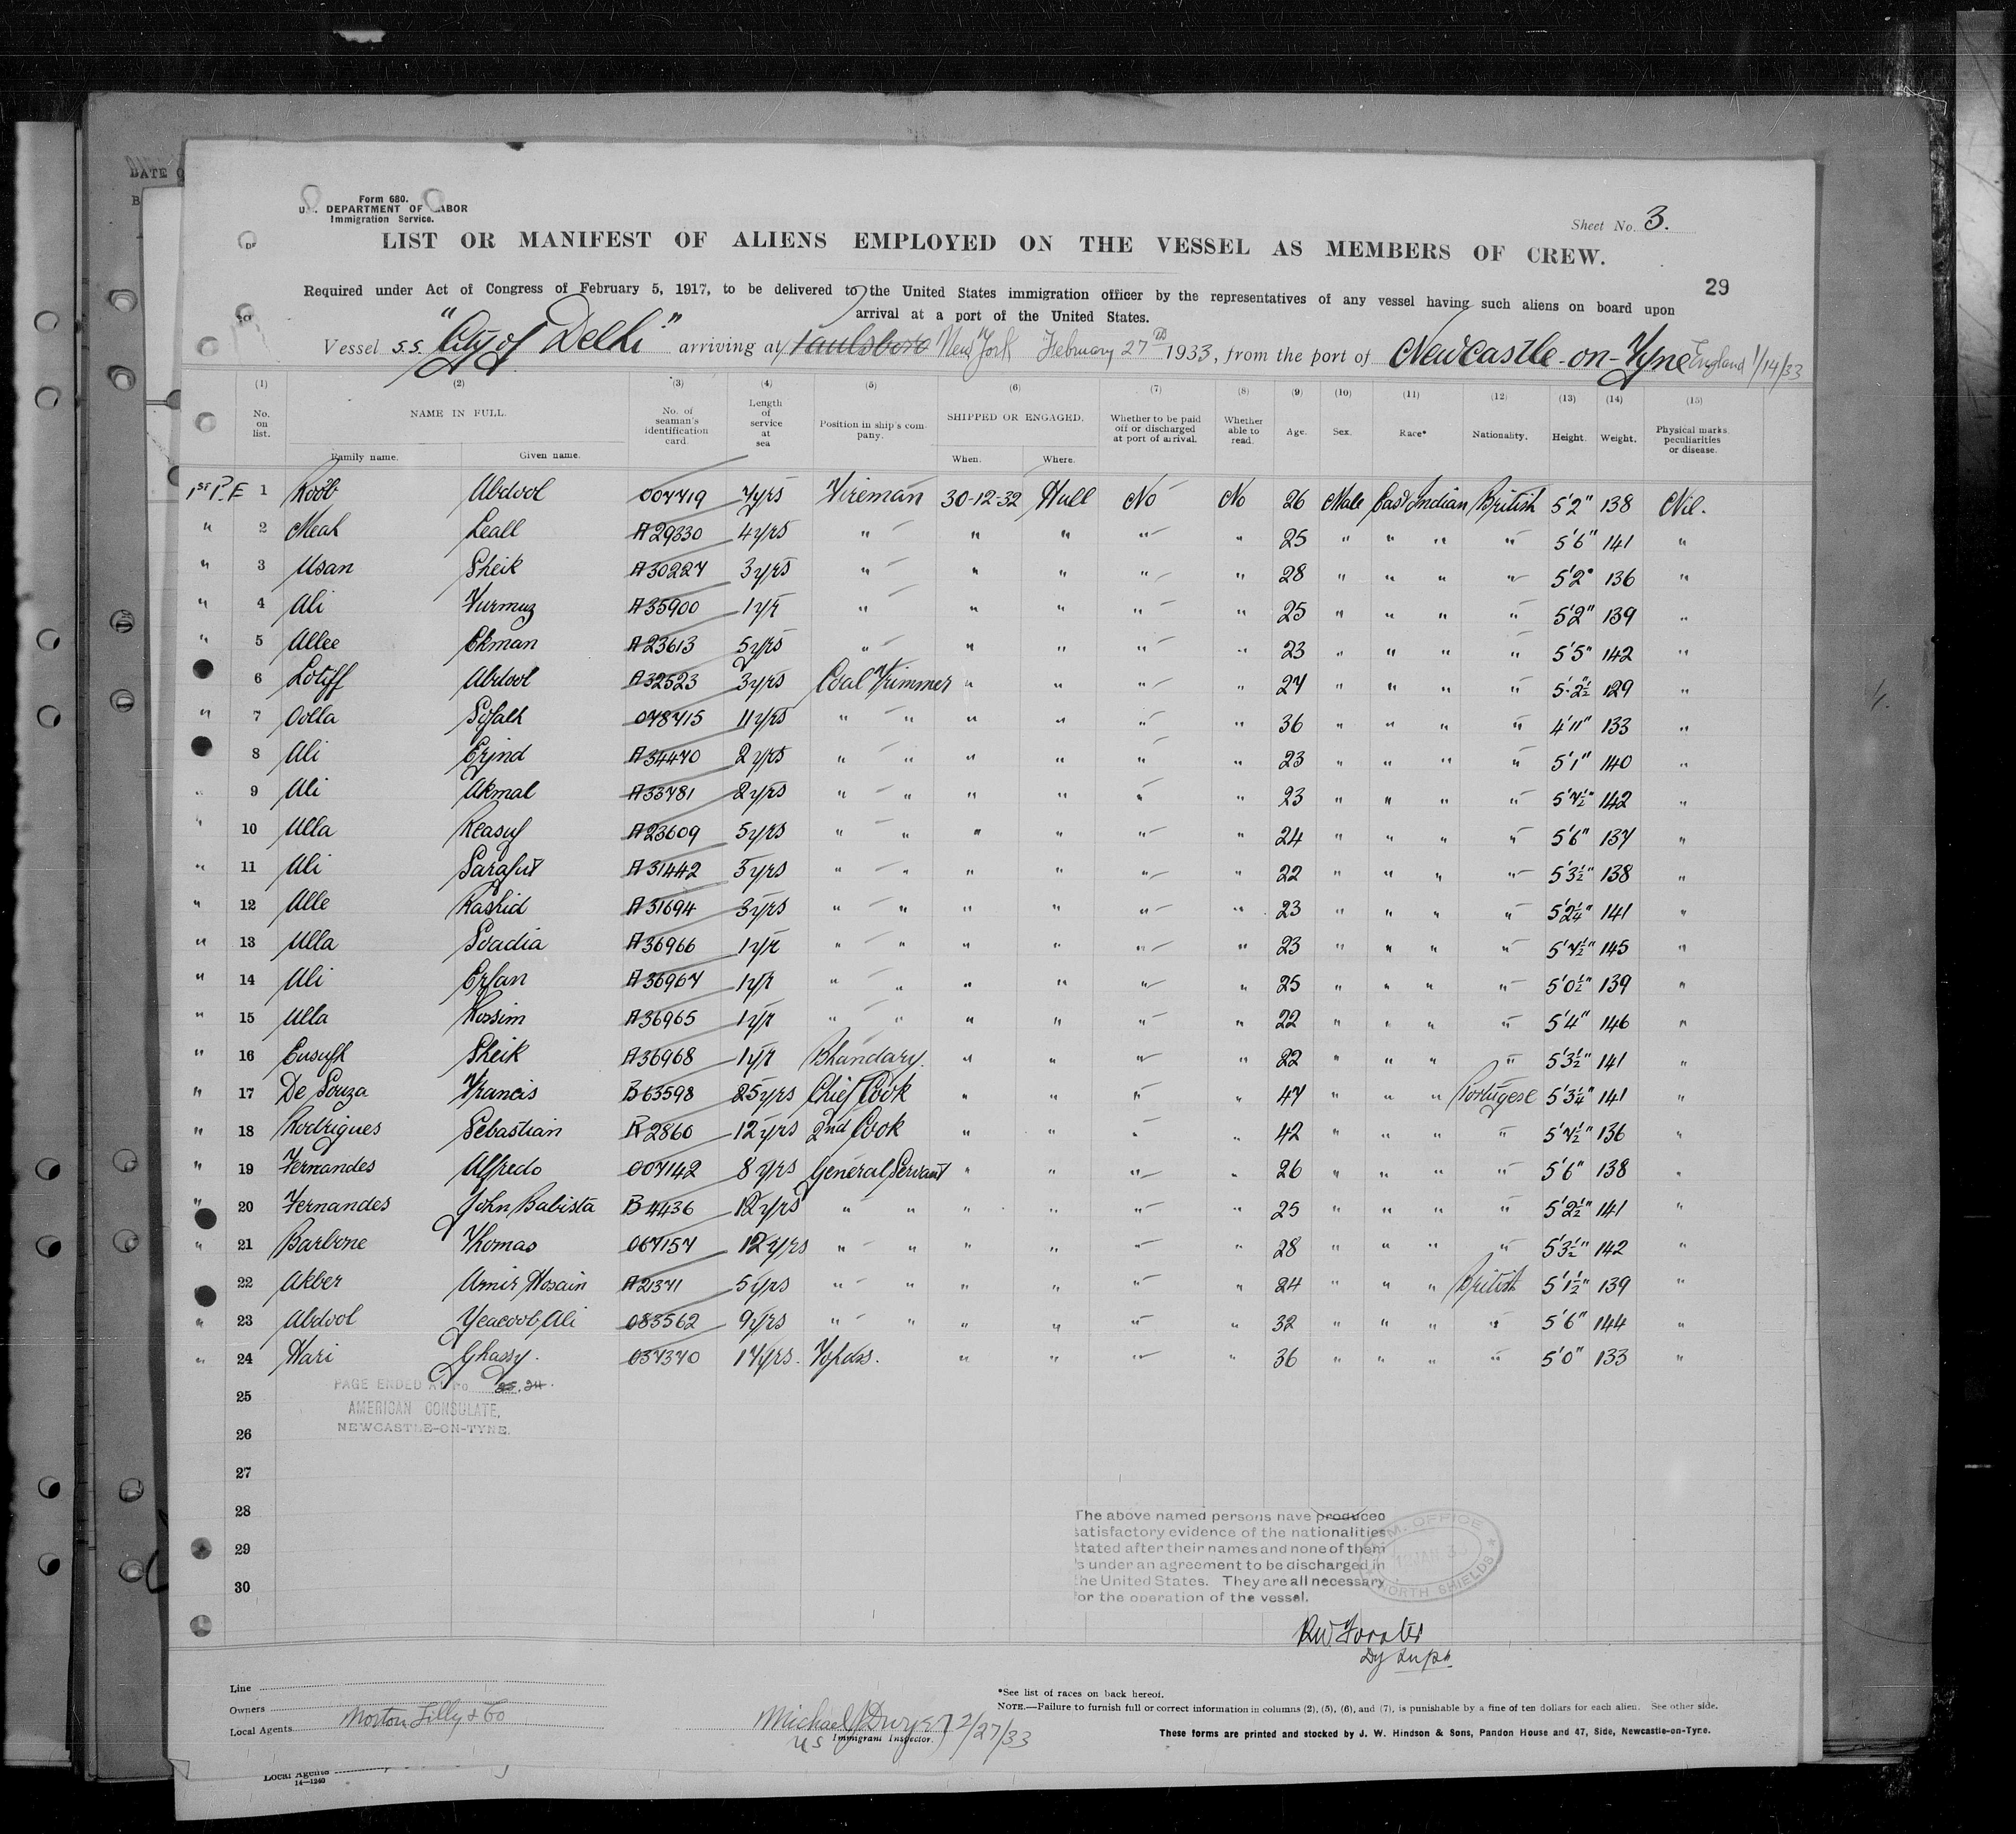 Form 680.
U.S. DEPARTMENT OF LABOR
Immigration Service.
Sheet No. 3.
LIST OR MANIFEST OF ALIENS EMPLOYED ON THE VESSEL AS MEMBERS OF CREW.
29
Required under Act of Congress of February 5, 1917, to be delivered to the United States immigration officer by the representatives of any vessel having such aliens on board upon
arrival at a port of the United States.
Vessel S.S. "City of Delhi" arriving at Paulsboro New York February 27th 1933, from the port of Newcastle-on-Tyne England 1/14/33
(1) (2) (3) (4) (5) (6) (7) (8) (9) (10) (11) (12) (13) (14) (15)
No. on list. NAME IN FULL. No. of seaman's identification card. Length of service at sea Position in ship's company. SHIPPED OR ENGAGED. Whether to be paid off or discharged at port of arrival. Whether able to read. Age. Sex. Race* Nationality. Height. Weight. Physical marks, peculiarities or disease.
Family name. Given name. When. Where.
1st P.E 1 Roob Abdool 007719 7yrs Fireman 30-12-32 Hull No No 26 Male East Indian British 5'2" 138 Nil.
" 2 Meah Leall A29330 4yrs " " " " " 25 " " " " 5'6" 141 "
" 3 Usan Sheik A30227 3yrs " " " " " 28 " " " " 5'2" 136 "
" 4 Ali Furmuz A35900 1yr " " " " " 25 " " " " 5'2" 139 "
" 5 Allee Ekman A23613 5yrs " " " " " 23 " " " " 5'5" 142 "
6 Lotiff Abdool A32523 3yrs Coal Trimmer " " " " 27 " " " " 5'2½" 129 "
" 7 Oolla Sofalh 078715 11yrs " " " " " " 36 " " " " 4'11" 133 "
8 Ali Erjnd A34470 2yrs " " " " " " 23 " " " " 5'1" 140 "
" 9 Ali Akmal A33781 2yrs " " " " " " 23 " " " " 5'7½" 142 "
" 10 Ulla Keasuf A23609 5yrs " " " " " " 24 " " " " 5'6" 137 "
" 11 Ali Sarafut A31442 3yrs " " " " " " 22 " " " " 5'3½" 138 "
" 12 Alle Rashid A31694 3yrs " " " " " " 23 " " " " 5'2¼" 141 "
" 13 Ulla Soadia A36966 1yr " " " " " " 23 " " " " 5'7½" 145 "
" 14 Ali Erfan A36967 1yr " " " " " " 25 " " " " 5'0½" 139 "
" 15 Ulla Kossim A36965 1yr " " " " " " 22 " " " " 5'4" 146 "
" 16 Eusuph Sheik A36968 1yr Bhandary. " " " " 22 " " " " 5'3½" 141 "
" 17 De Souza Francis B63598 25yrs Chief Cook " " " " 47 " " " Portugese 5'3¼" 141 "
" 18 Rodrigues Sebastian R2860 12yrs 2nd Cook " " " " 42 " " " " 5'7½" 136 "
" 19 Fernandes Alfredo 007142 8yrs General Servant " " " " 26 " " " " 5'6" 138 "
" 20 Fernandes John Babista B4436 12yrs " " " " " " 25 " " " " 5'2½" 141 "
" 21 Barbone Thomas 067157 12yrs " " " " " " 28 " " " " 5'3½" 142 "
22 Akber Amir Hosain A2371 5yrs " " " " " " 24 " " " British 5'1½" 139 "
" 23 Abdool Yeacoob Ali 083562 9yrs " " " " " " 32 " " " " 5'6" 144 "
" 24 Hari Ghassy. 037370 17yrs. Topass. " " " " 36 " " " " 5'0" 133 "
PAGE ENDED AT No 24.
25
AMERICAN CONSULATE,
NEWCASTLE-ON-TYNE.
26
27
28
29
30
The above named persons have produced
satisfactory evidence of the nationalities
stated after their names and none of them
is under an agreement to be discharged in
the United States. They are all necessary
for the operation of the vessel.
M.M. OFFICE
12 JAN 33
NORTH SHIELDS
RW Forster
Dy Supt
Line
Owners
Local Agents Morton Lilly & Co
Michael J Dwyer 2/27/33
US Immigrant Inspector.
*See list of races on back hereof.
NOTE.—Failure to furnish full or correct information in columns (2), (5), (6), and (7), is punishable by a fine of ten dollars for each alien. See other side.
These forms are printed and stocked by J. W. Hindson & Sons, Pandon House and 47, Side, Newcastle-on-Tyne.
Local Agents
14—1240